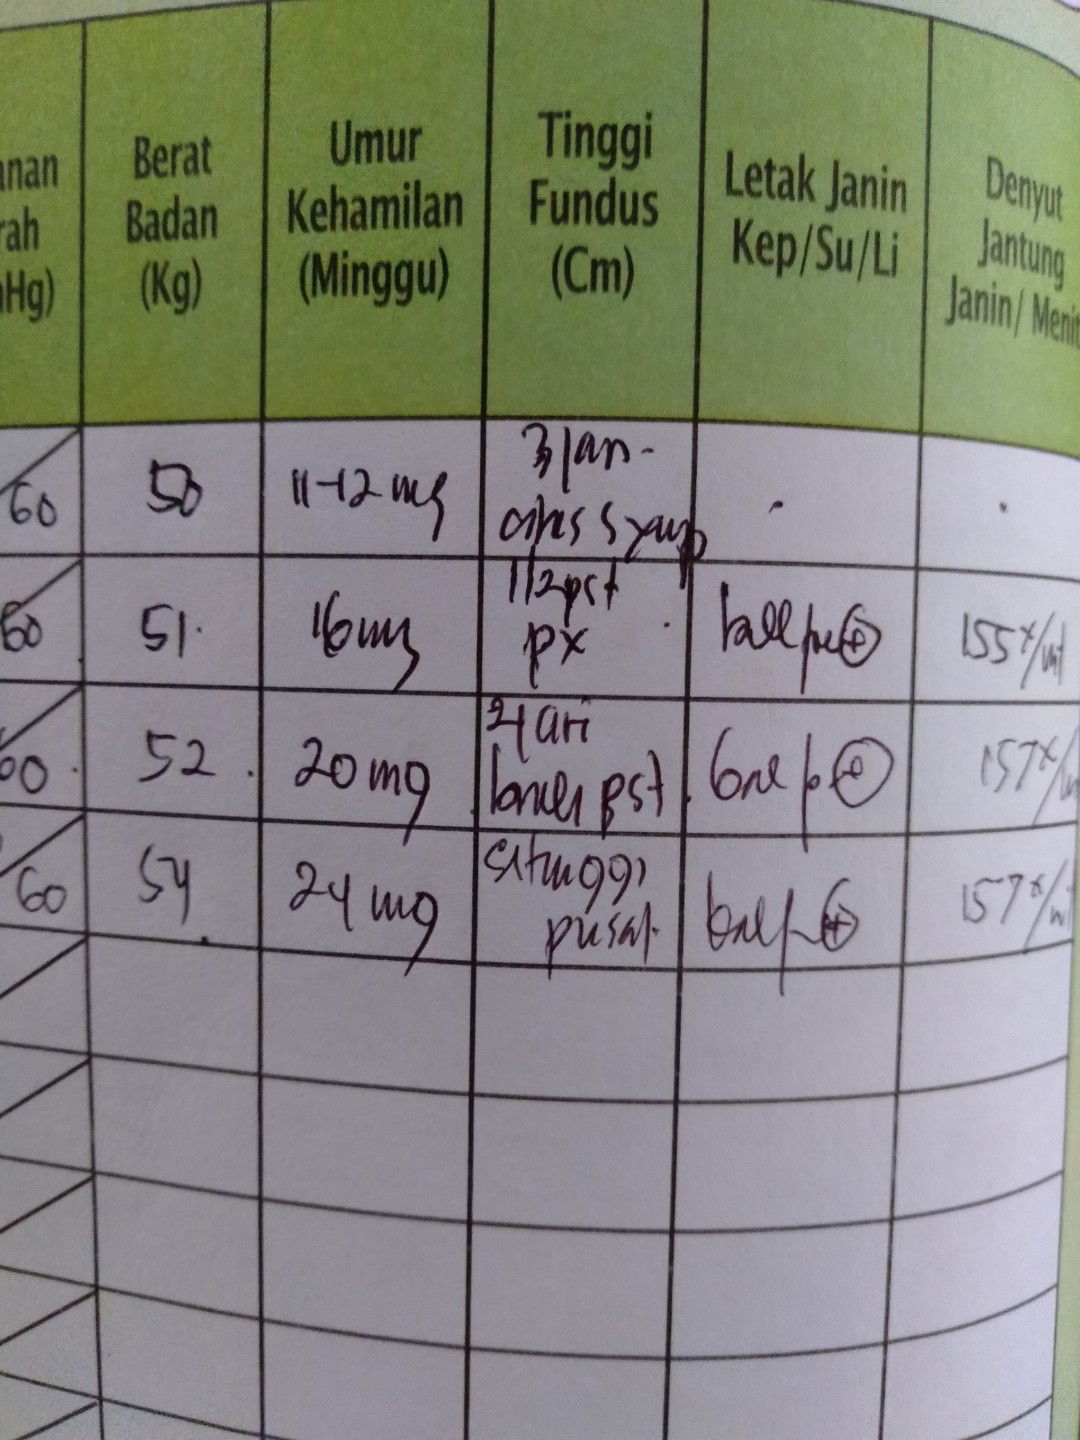 anan
rah
Hg)
Berat
Badan
(Kg)
Umur
Kehamilan
(Minggu)
Tinggi
Fundus
(Cm)
Letak Janin
Kep/Su/Li
Denyut
Jantung
Janin/ Menit
60
50
11-12 mg
3 Jari
60
51
16 mg
1/2 pst
px
155x/mt
60
52
20 mg
2 Jari
pst
157x/
60
54
24 mg
setinggi
pusat
157x/m